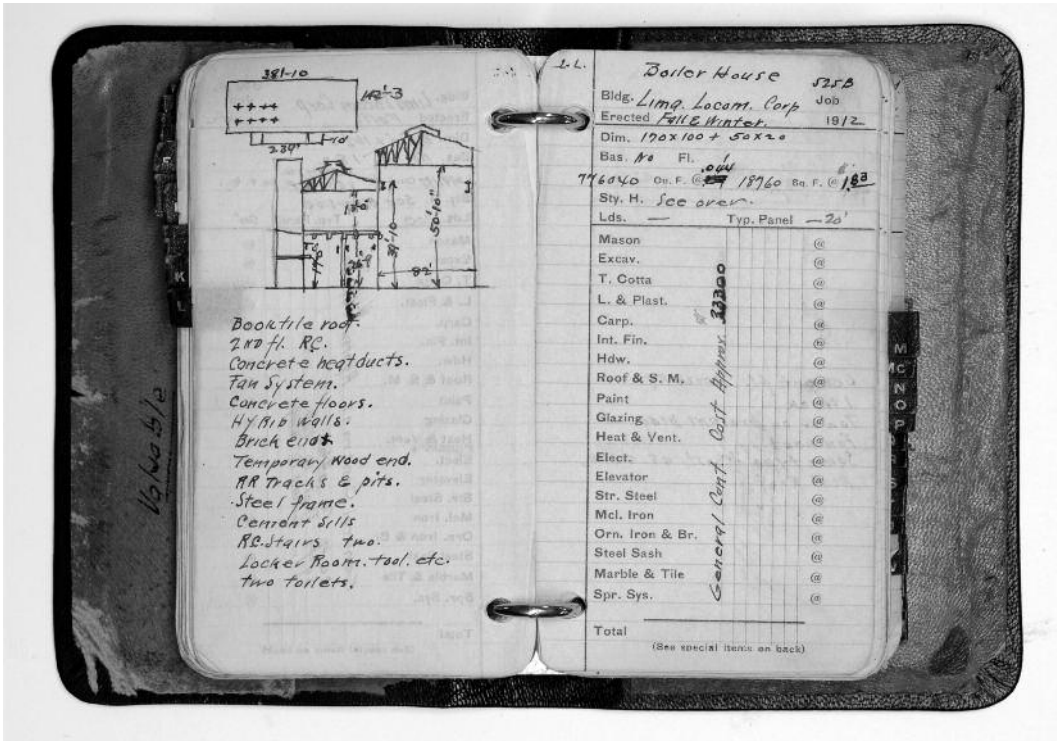 381-10
112'-3
239'
10'
13'-0"
39'-10
50'-10"
17'-0"
82'
Booktile roof.
2ND fl. RC.
Concrete heat ducts.
Fan System.
Concrete floors.
HY Rib walls.
Brick end
Temporary Wood end.
RR Tracks & pits.
Steel frame.
Cement Sills
RC. Stairs two.
Locker Room. tool. etc.
two toilets.
Valuable
K
L
L.L.
Boiler House
525B
Bldg. Lima. Locom. Corp Job
Erected Fall & Winter. 1912
Dim. 170x100 + 50x20
Bas. No Fl.
776040 Cu. F. @ .044 18960 Sq. F. @ 1.83
Sty. H. See over.
Lds. — Typ. Panel —20'
Mason @
Excav. @
T. Cotta @
L. & Plast. @
Carp. @
Int. Fin. @
Hdw. @
Roof & S. M. @
Paint @
Glazing @
Heat & Vent. @
Elect. @
Elevator @
Str. Steel @
Mcl. Iron @
Orn. Iron & Br. @
Steel Sash @
Marble & Tile @
Spr. Sys. @
General Cont. Cost Approx. 33300
Total
(See special items on back)
M
Mc
N
O
P